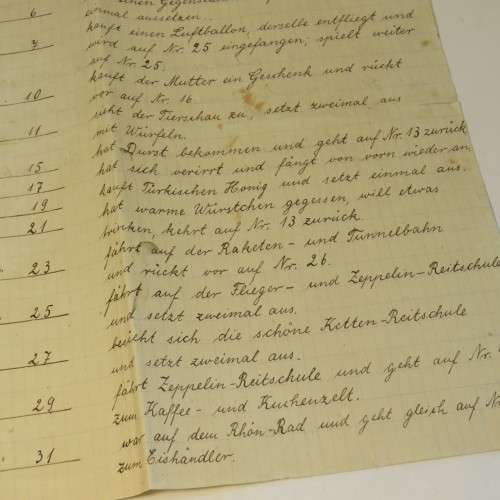 einen Gegenstand
6 einmal aussetzen.
7 kauft einen Luftballon, derselbe entfliegt und
wird auf Nr. 25 eingefangen, spielt weiter
auf Nr. 25.
10 kauft der Mutter ein Geschenk und rückt
vor auf Nr. 16.
11 sieht der Tierschau zu, setzt zweimal aus
mit Würfeln.
15 hat Durst bekommen und geht auf Nr. 13 zurück
17 hat sich verirrt und fängt von vorn wieder an
19 kauft Türkischen Honig und setzt einmal aus.
21 hat warme Würstchen gegessen, will etwas
trinken, kehrt auf Nr. 13 zurück.
23 fährt auf der Raketen- und Tunnelbahn
und rückt vor auf Nr. 26.
25 fährt auf der Flieger- und Zeppelin-Reitschule
und setzt zweimal aus.
27 besieht sich die schöne Ketten-Reitschule
und setzt zweimal aus.
29 fährt Zeppelin-Reitschule und geht auf Nr.
zum Kaffee- und Kuchenzelt.
31 war auf dem Rhön-Rad und geht gleich auf Nr.
zum Eishändler.